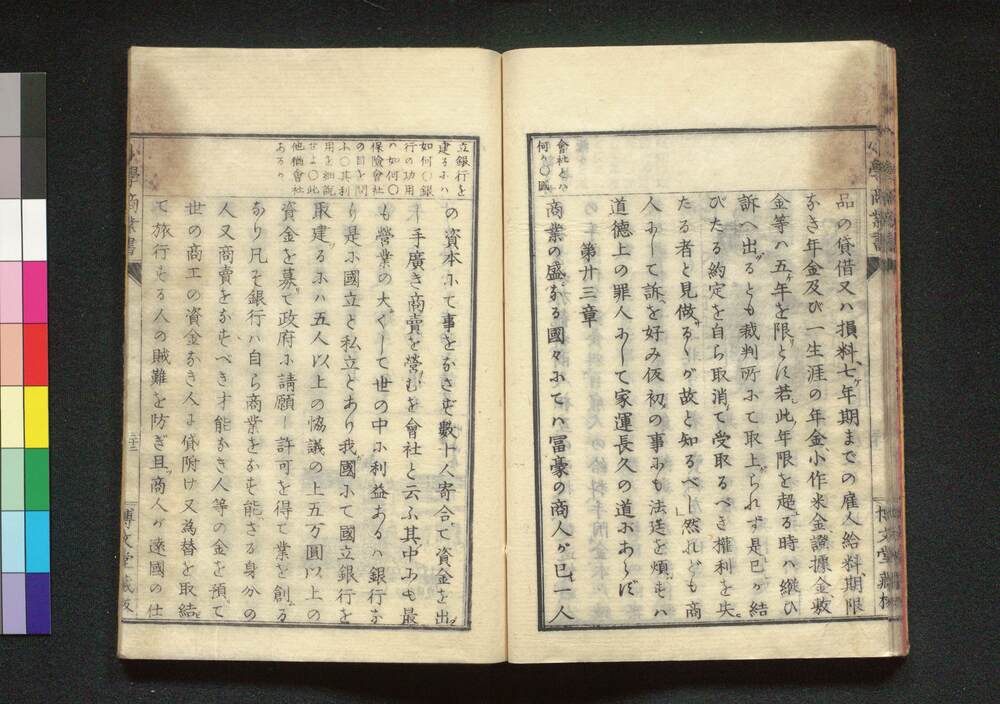 會社とハ
何カ〇國
品の貸借又ハ損料七ケ年期までの雇人給料期限
なき年金及び一生涯の年金小作米金證據金敷
金等ハ五ケ年を限とす若此年限を超る時ハ縦ひ
訴へ出るとも裁判所にて取上られず是已が結
びたる約定を自ら取消て受取るべき權利を失
たる者と見做るゝが故と知るべし然れども商
人にして訴を好み仮初の事にも法廷を煩すハ
道德上の罪人にして家運長久の道にあらず
第廿三章
商業の盛なる國々にてハ冨豪の商人が已に一人
小學商業書
博文堂藏板
立銀行を
建るにハ
如何〇銀
行の功用
ハ如何〇
保險會社
の目を問
ふ〇其利
用を細説
せよ〇此
他猶會社
あるか
の資本にて事をなさず數十人寄合て資金を出
し手廣き商賣を營むを會社と云ふ其中にも最
も營業の大くして世の中に利益あるハ銀行な
り是に國立と私立とあり我國にて國立銀行を
取建るにハ五人以上の協議の上五万圓以上の
資金を募て政府に請願し許可を得て業を創る
なり凡そ銀行ハ自ら商業をなす能ざる身分の
人又商賣をなすべき才能なき人等の金を預て
世の商工の資金なき人に貸附け又為替を取結
て旅行する人の賊難を防ぎ且商人が遠國の仕
小學商業書
三十三
博文堂藏板